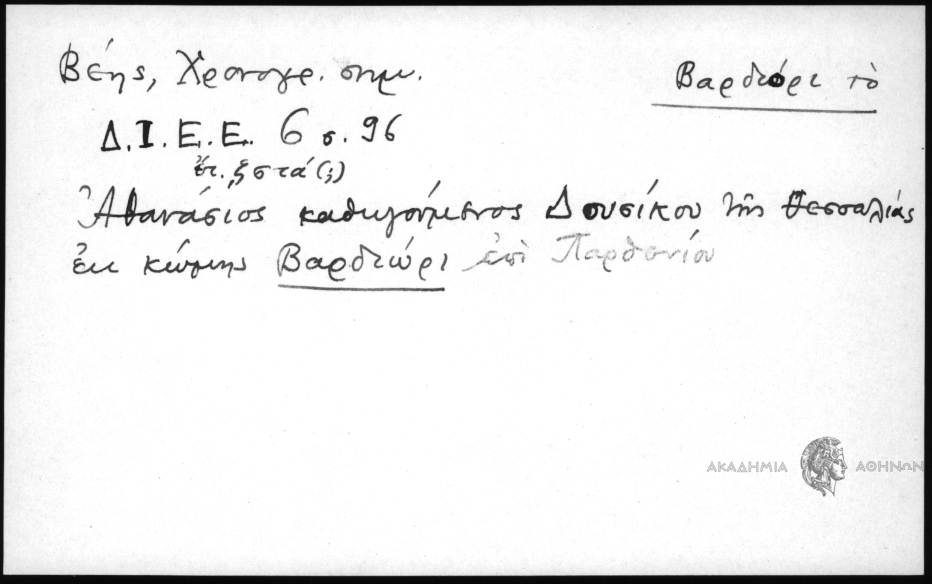 Βέης, Χρονογρ. σημ.
Βαρδιόρι τὸ
Δ.Ι.Ε.Ε. 6 σ. 96
ἔτ. ͵ζστά (;)
Ἀθανάσιος καθηγούμενος Δουσίκου τῆς Θεσσαλίας
ἐκ κώμης Βαρδιώρι ἐπὶ Παρθενίου
ΑΚΑΔΗΜΙΑ ΑΘΗΝΩΝ